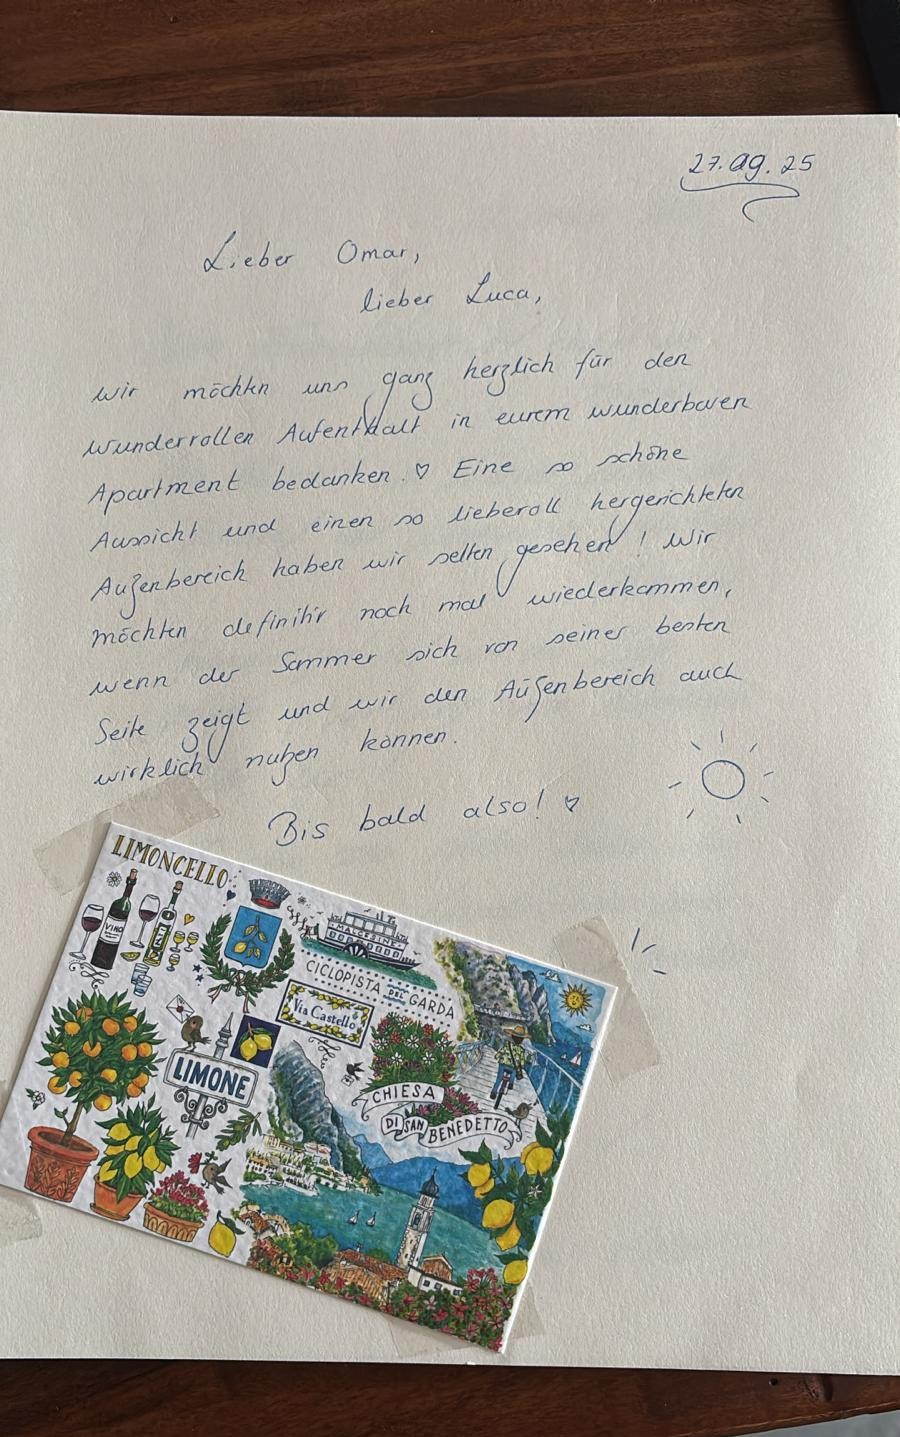 27.09.25
Lieber Omar,
lieber Luca,
wir möchten uns ganz herzlich für den
wundervollen Aufenthalt in eurem wunderbaren
Apartment bedanken. ♡ Eine so schöne
Aussicht und einen so liebevoll hergerichteten
Außenbereich haben wir selten gesehen! Wir
möchten definitiv noch mal wiederkommen,
wenn der Sommer sich von seiner besten
Seite zeigt und wir den Außenbereich auch
wirklich nutzen können.
Bis bald also! ♡
LIMONCELLO
VINO
MALCESINE
CICLOPISTA DEL GARDA
Via Castello
LIMONE
CHIESA
DI SAN BENEDETTO